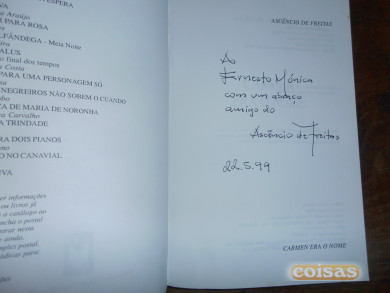 ESPERA
VA
Araújo
PARA ROSA
LFÂNDEGA - Meia Noite
ALUX
o final dos tempos
Costa
PARA UMA PERSONAGEM SÓ
NEGREIROS NÃO SOBEM O CUANDO
bo
TA DE MARIA DE NORONHA
ra Carvalho
A TRINDADE
RA DOIS PIANOS
no
O NO CANAVIAL
IVA
er informações
ou livros já
o catálogo ao
ncha o postal
urar nesta
ainda,
mples postal.
ódicas para:
ções
ASCÊNCIO DE FREITAS
Ao
Ernesto Mónica
com um abraço
amigo do
Ascêncio de Freitas
22.5.99
CARMEN ERA O NOME
coisas